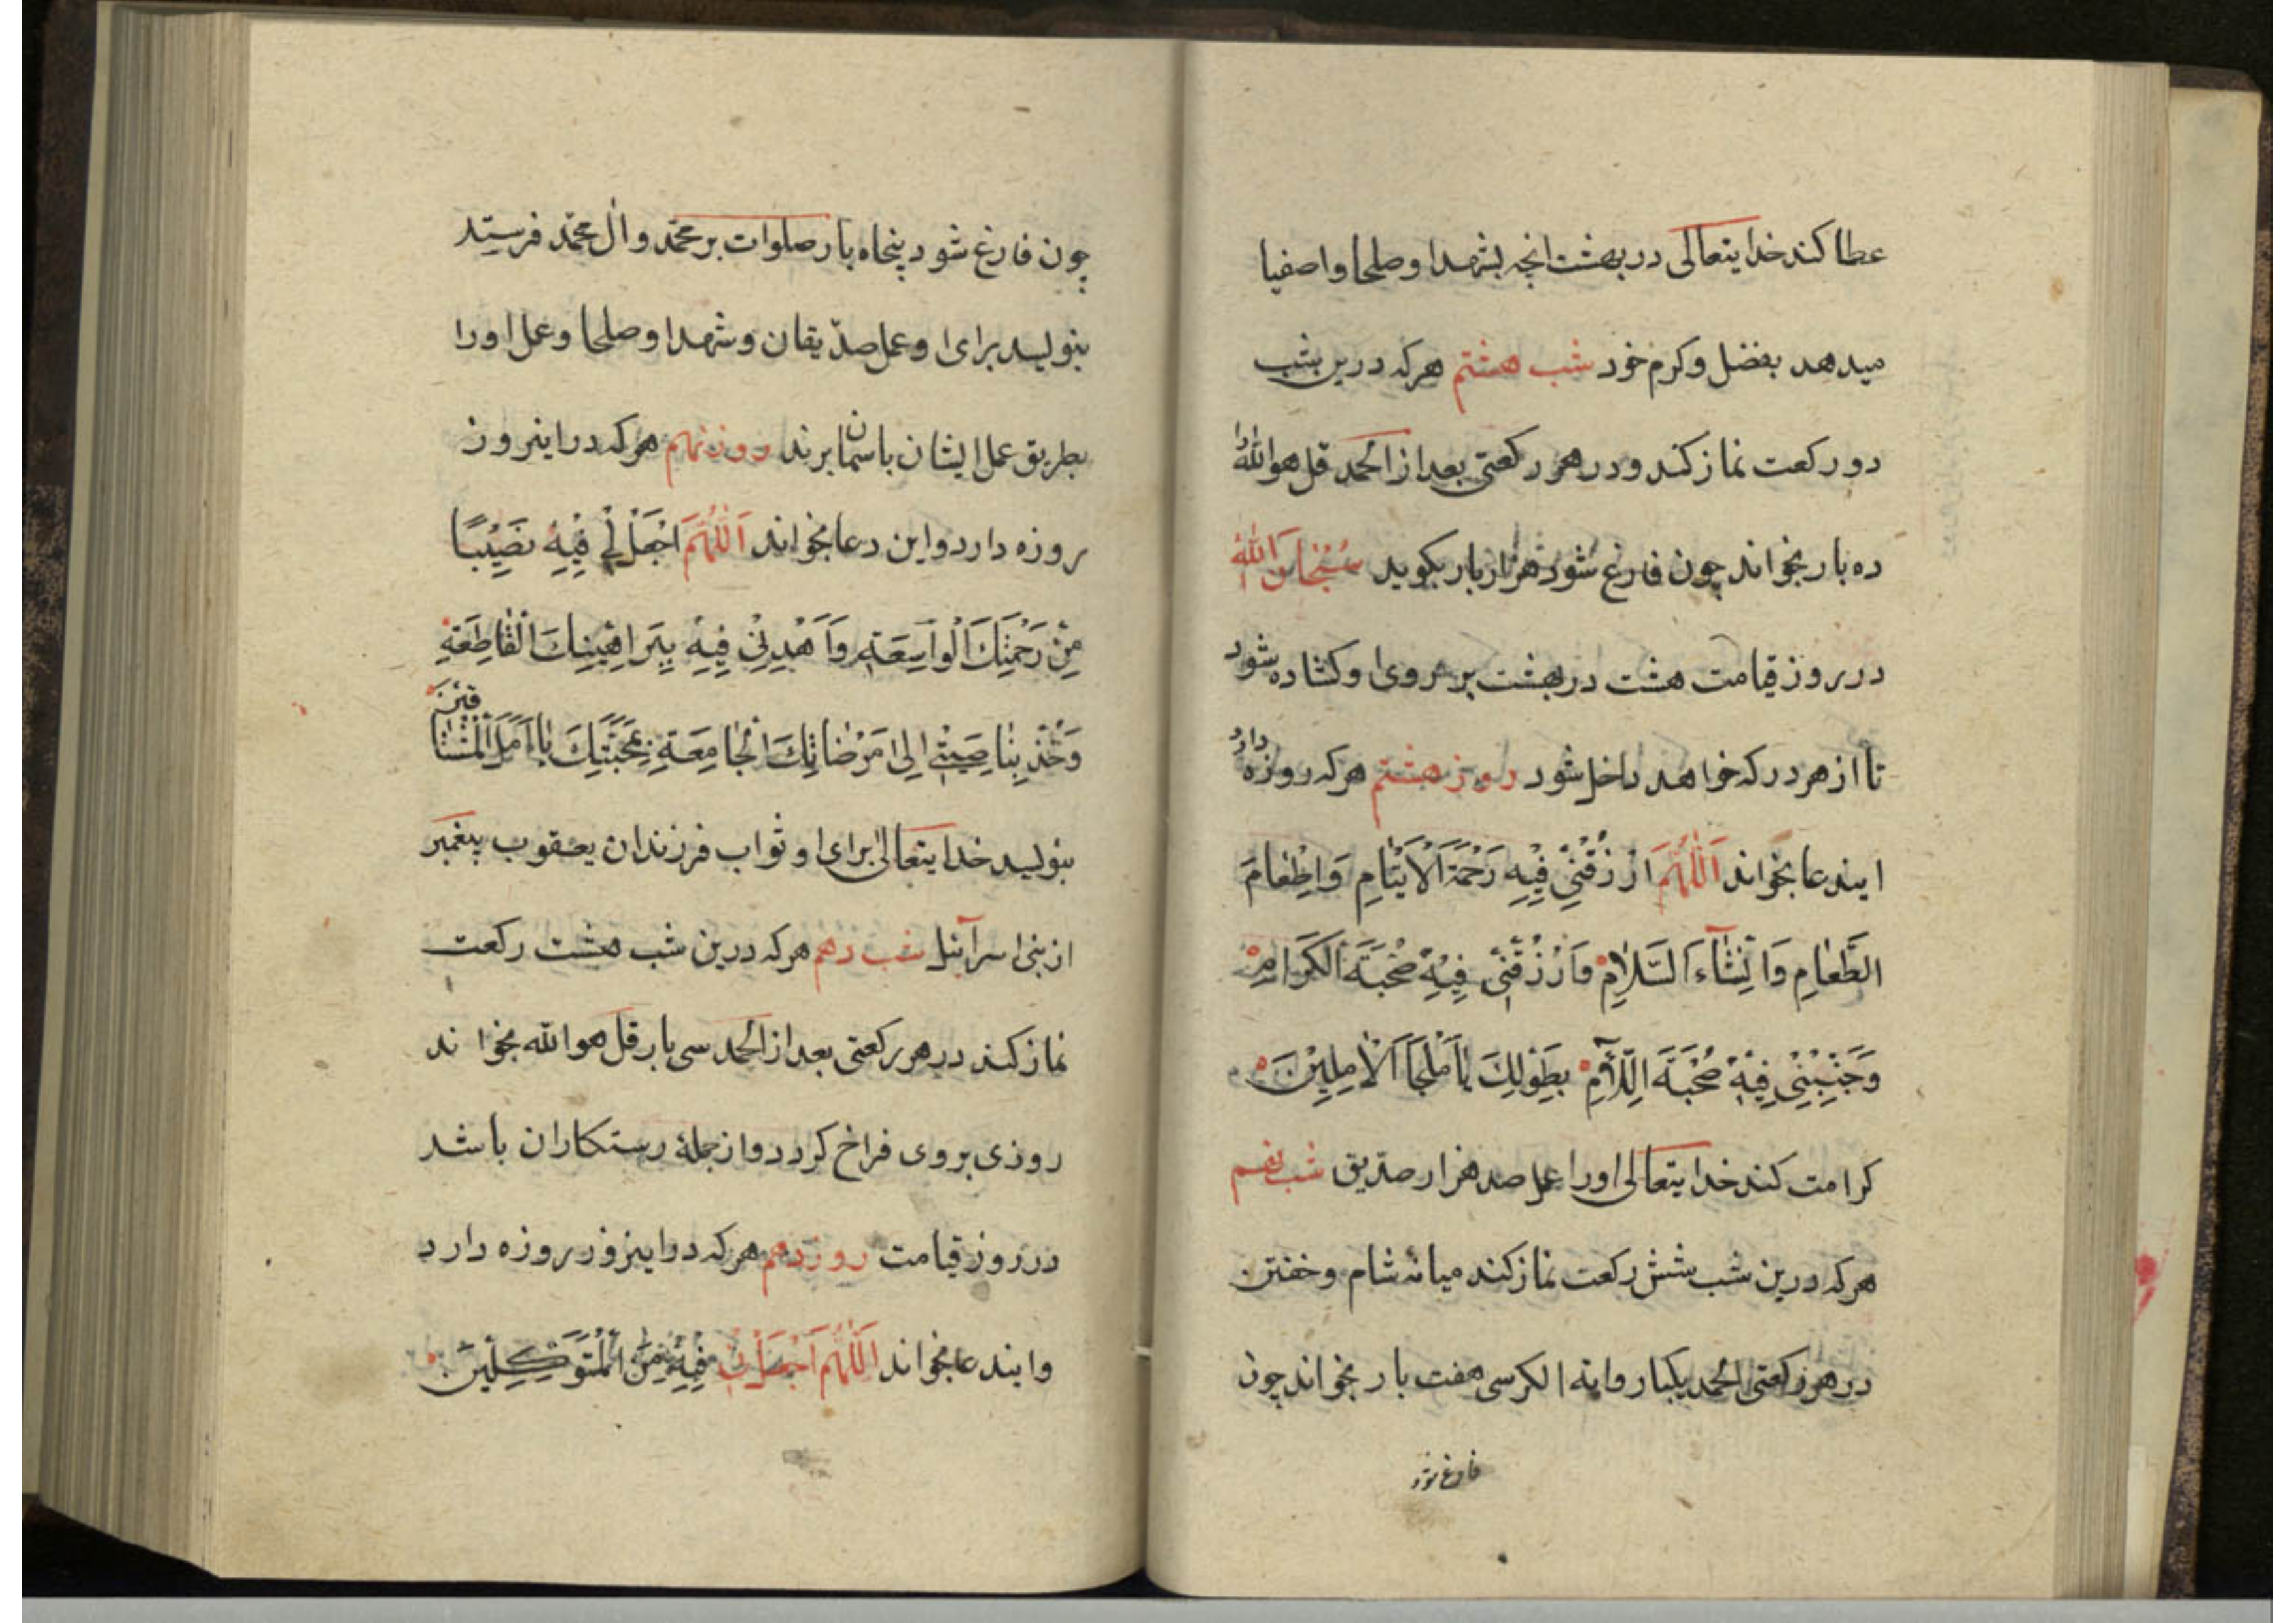 عطا کند خدایتعالی در بهشت انچه بشهدا وصلحا واصفیا
میدهد بفضل وکرم خود شب هشتم هرکه درین شب
دو رکعت نماز کند ودر هر رکعتی بعد از الحمد قل هوالله را
ده بار بخواند چون فارغ شود هزار بار بکوید سُبْحَانَ اللّٰهِ
در روز قیامت هشت در بهشت بر روی او کشاده شود
تا از هر در که خواهد داخل شود روز هشتم هرکه روزه دارد
ایندعا بخواند اَللّٰهُمَّ ارْزُقْنِیْ فِیْهِ رَحْمَةَ الْاَیْتَامِ وَاِطْعَامَ
الطَّعَامِ وَاِفْشَآءَ السَّلَامِ وَارْزُقْنِیْ فِیْهِ صُحْبَةَ الْکَرَامِ
وَجَنِّبْنِیْ فِیْهِ صُحْبَةَ اللِّئَامِ بِطَوْلِكَ یَا مَلْجَاَ الْاٰمِلِیْنَ
کرامت کند خدایتعالی اورا عمل صد هزار صدّیق شب نهم
هرکه درین شب شش رکعت نماز کند میانه شام وخفتن
در هر رکعتی الحمد یکبار وایة الکرسی هفت بار بخواند چون
فارغ شود
چون فارغ شود پنجاه بار صلوات بر محمّد وآل محمّد فرستد
بنویسد برای او عمل صدّیقان وشهدا وصلحا وعمل اورا
بطریق عمل ایشان باسمان برند روز نهم هرکه در اینروز
روزه دارد واین دعا بخواند اَللّٰهُمَّ اجْعَلْ لِیْ فِیْهِ نَصِیْبًا
مِنْ رَحْمَتِكَ الْوَاسِعَةِ وَاهْدِنِیْ فِیْهِ بِبَرَاهِیْنِكَ الْقَاطِعَةِ
وَخُذْ بِنَاصِیَتِیْ اِلٰی مَرْضَاتِكَ الْجَامِعَةِ بِمَحَبَّتِكَ یَا اَمَلَ الْمُشْتَاقِیْنَ
بنویسد خدایتعالی برای او ثواب فرزندان یعقوب پیغمبر
از بنی اسرآئیل شب دهم هرکه درین شب هشت رکعت
نماز کند در هر رکعتی بعد از الحمد سی بار قل هوالله بخواند
روزی بر وی فراخ کردد واز جملهٔ رستکاران باشد
در روز قیامت روز دهم هرکه در اینروز روزه دارد
وایندعا بخواند اَللّٰهُمَّ اجْعَلْنِیْ فِیْهِ مِنَ الْمُتَوَکِّلِیْنَ